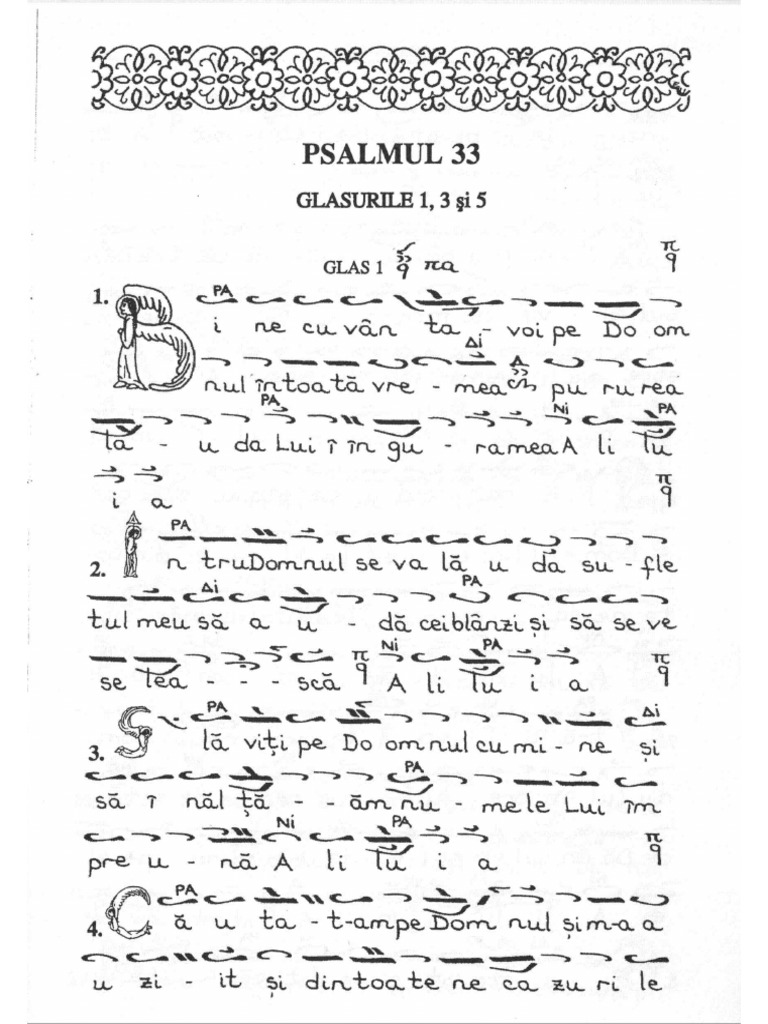 PSALMUL 33
GLASURILE 1, 3 şi 5
GLAS 1 πα π q
PA
1. B i ne cu vân ta - voi pe Do om
Δi
nul în toată vre - mea pu ru rea
PA Ni PA
tă - u da Lui î în gu - ra mea A li lu
i a π q
PA
2. Î n tru Domnul se va lă u da su - fle
Δi PA
tul meu să a u - dă cei blânzi și să se ve
Ni PA
se lea - - - scă π q A li lu i a π q
PA Δi
3. S lă viți pe Do om nul cu mi - ne și
PA
să î năl ță - - ăm nu - me le Lui îm
Ni PA
pre u - nă A li lu i a π q
PA
4. C ă u ta - t-am pe Dom nul și m-a a
u zi - it și din toate ne ca zu ri le